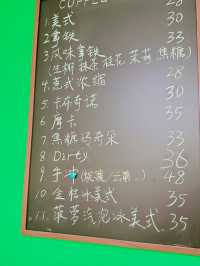 COFFEE
1.美式 28
2.拿铁 30
3.风味拿铁 33
(生椰 桂花 茉莉 焦糖)
4.意式浓缩 28
5.卡布奇诺 30
6 摩卡 35
7 焦糖玛奇朵 33
8 Dirty 36
9 手冲 (云南..) 48
10 金桔冰美式 35
11.菠萝汽泡冰美式 35